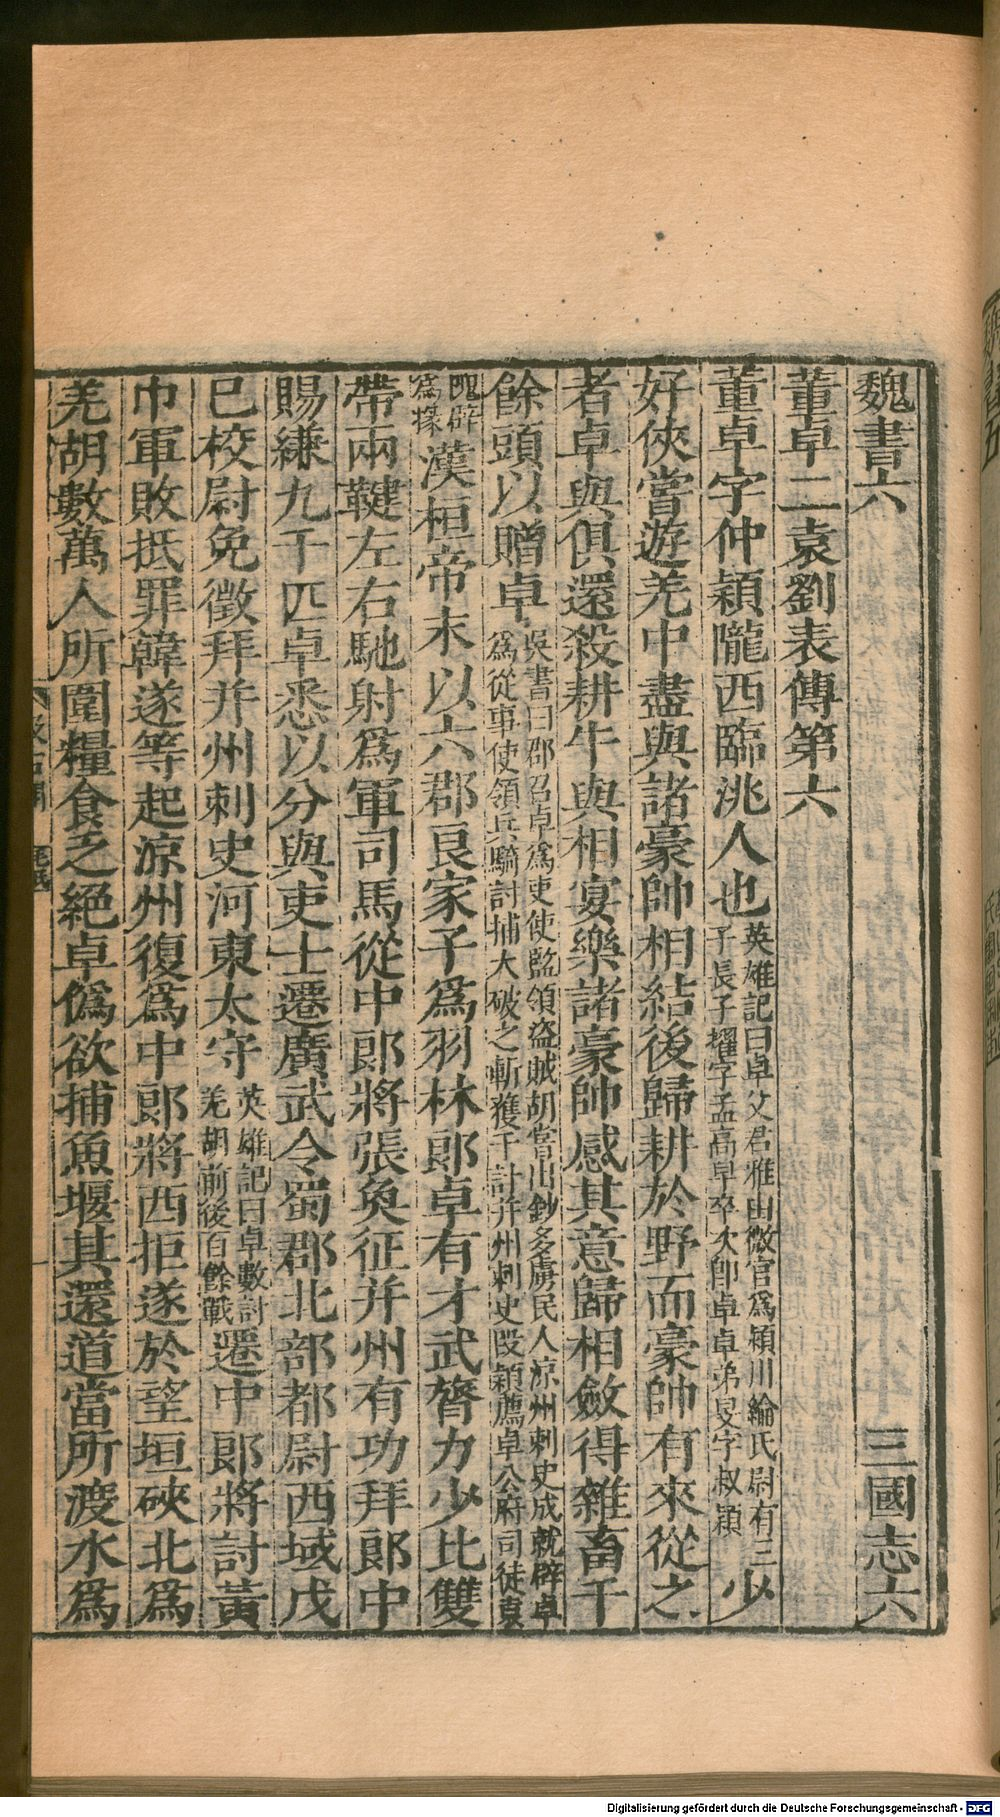 魏書六 三國志六
董卓二袁劉表傳第六
董卓字仲穎隴西臨洮人也英雄記曰卓父君雅由微官爲潁川綸氏尉有三子長子擢字孟高早卒次卽卓卓弟旻字叔穎少
好俠嘗遊羌中盡與諸豪帥相結後歸耕於野而豪帥有來從之
者卓與俱還殺耕牛與相宴樂諸豪帥感其意歸相斂得雜畜千
餘頭以贈卓吳書曰郡召卓爲吏使監領盜賊胡嘗出鈔多虜民人涼州刺史成就辟卓爲從事使領兵騎討捕大破之斬獲千計并州刺史段熲薦卓公府司徒袁
隗辟爲掾漢桓帝末以六郡良家子爲羽林郎卓有才武膂力少比雙
帶兩鞬左右馳射爲軍司馬從中郎將張奐征并州有功拜郎中
賜縑九千匹卓悉以分與吏士遷廣武令蜀郡北部都尉西域戊
巳校尉免徵拜并州刺史河東太守英雄記曰卓數討羌胡前後百餘戰遷中郎將討黃
巾軍敗抵罪韓遂等起涼州復爲中郎將西拒遂於望垣硤北爲
羌胡數萬人所圍糧食乏絕卓僞欲捕魚堰其還道當所渡水爲
Digitalisierung gefördert durch die Deutsche Forschungsgemeinschaft - DFG